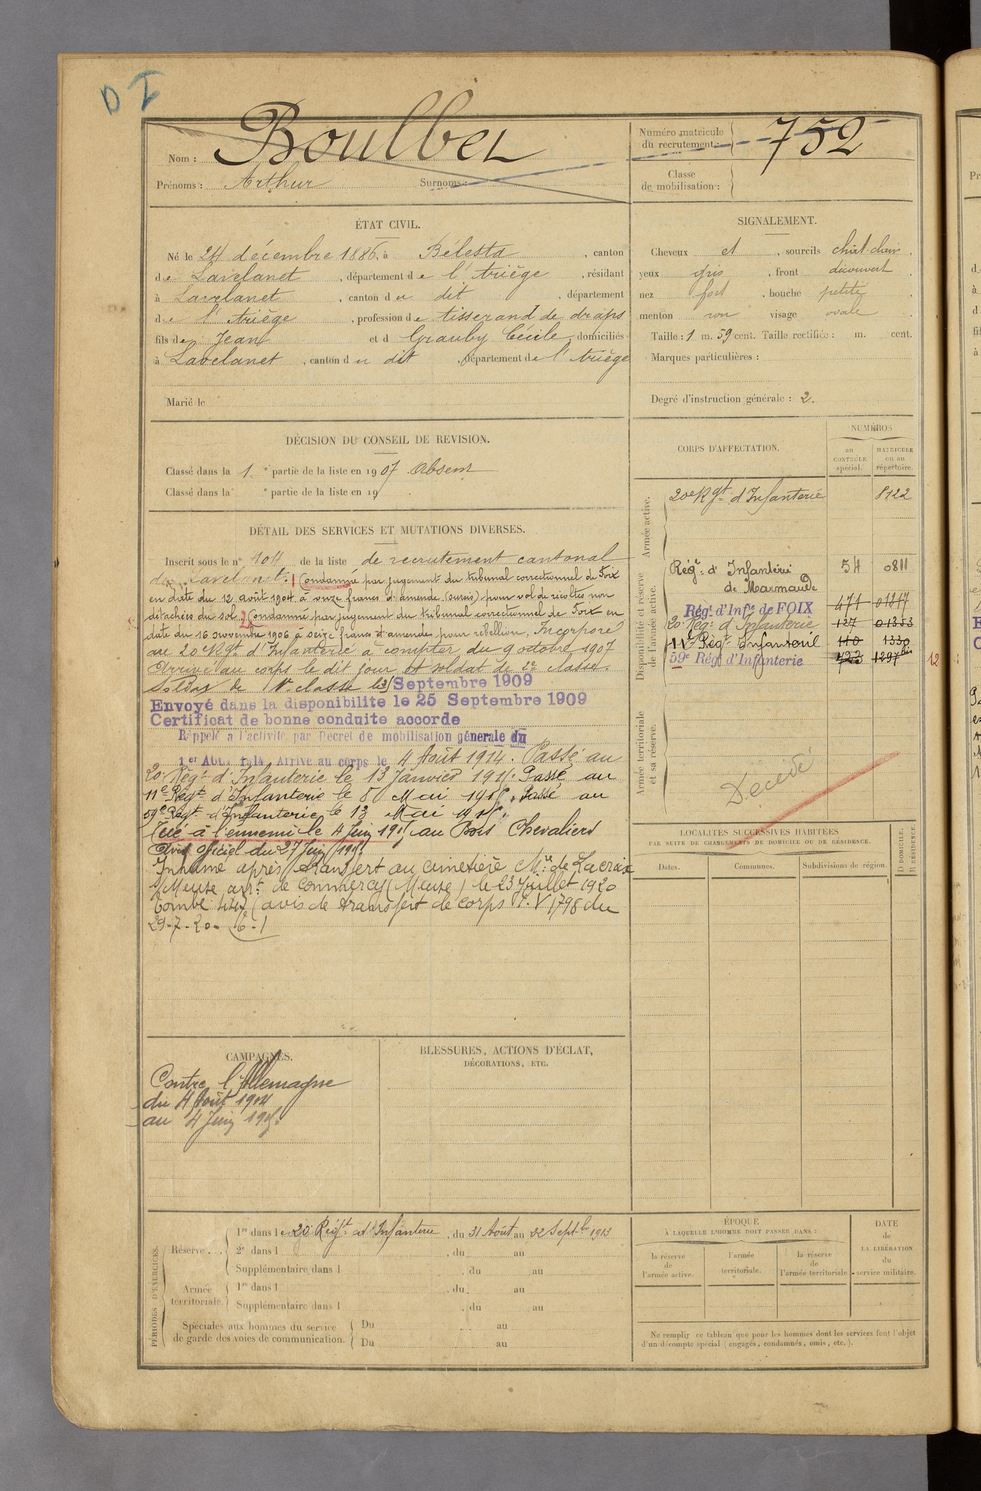 Nom : Boulbet
Numéro matricule du recrutement : 752
Prénoms : Arthur Surnoms :
Classe de mobilisation :
ÉTAT CIVIL.
Né le 24 décembre 1886, à Bélesta, canton
de Lavelanet, département de l'Ariège, résidant
à Lavelanet, canton du dit, département
de l'Ariège, profession de tisserand de draps
fils de Jean et d Grauby Cécile, domiciliés
à Lavelanet, canton du dit, département de l'Ariège
Marié le
SIGNALEMENT.
Cheveux et, sourcils chat. clair.
yeux gris, front découvert
nez fort, bouche petite
menton ron visage ovale
Taille : 1 m. 59 cent. Taille rectifiée : m. cent.
Marques particulières :
Degré d'instruction générale : 2.
DÉCISION DU CONSEIL DE REVISION.
Classé dans la 1 e partie de la liste en 1907 Absent
Classé dans la e partie de la liste en 19 .
DÉTAIL DES SERVICES ET MUTATIONS DIVERSES.
Inscrit sous le n° 104 de la liste de recrutement cantonal
de Lavelanet. 1 Condamné par jugement du tribunal correctionnel de Foix
en date du 12 août 1904 à onze francs d'amende (sursis) pour vol de récoltes non
détachées du sol. 2 Condamné par jugement du tribunal correctionnel de Foix en
date du 16 novembre 1906 à seize francs d'amende pour rebellion. Incorporé
au 20e Régt d'Infanterie à compter du 9 octobre 1907
Arrivé au corps le dit jour et soldat de 2e classe.
Soldat de 1re classe le Septembre 1909
Envoyé dans la disponibilite le 25 Septembre 1909
Certificat de bonne conduite accorde
Rappelé à l'activité par Décret de mobilisation générale du
1er Août 1914 Arrivé au corps le 4 Août 1914. Passé au
20e Régt d'Infanterie le 13 Janvier 1915. Passé au
11e Régt d'Infanterie le 8 Mai 1915. Passé au
59e Régt d'Infanterie le 13 Mai 1915.
Tué à l'ennemi le 4 Juin 1915 au Bois Chevaliers
Avis officiel du 27 Juin 1915.
Inhumé après transfert au cimetière de Lacroix
s/Meuse arrt de Commercy (Meuse) le 23 Juillet 1920
tombe (avis de transfert de corps 1798 du
29-7-20-
CORPS D'AFFECTATION.
NUMÉROS
AU CONTRÔLE spécial.
MATRICULE ou au répertoire.
Armée active.
20e Rgt d'Infanterie 8122
Disponibilité et réserve de l'armée active.
Régt d'Infanterie de Marmande 54 0811
Régt d'Infie de FOIX 471 01317
20e Régt d'Infanterie 127 01353
11e Régt Infanterie 110 1330
59e Régt d'Infanterie 423 1297 bis
12
Armée territoriale et sa réserve.
Décédé
LOCALITÉS SUCCESSIVES HABITÉES
PAR SUITE DE CHANGEMENTS DE DOMICILE OU DE RÉSIDENCE.
Dates. Communes. Subdivisions de région. D DOMICILE. R RÉSIDENCE.
CAMPAGNES.
Contre l'Allemagne
du 4 Août 1914
au 4 Juin 1915.
BLESSURES, ACTIONS D'ÉCLAT,
DÉCORATIONS, ETC.
PÉRIODES D'EXERCICES.
Réserve . . . 1re dans le 20e Régt d'Infanterie, du 31 Août au 22 Septbre 1913
2e dans l , du au
Supplémentaire dans l , du au
Armée territoriale. 1re dans l , du au
Supplémentaire dans l , du au
Spéciales aux hommes du service de garde des voies de communication. Du au
Du au
ÉPOQUE
À LAQUELLE L'HOMME DOIT PASSER DANS :
la réserve de l'armée active. l'armée territoriale. la réserve de l'armée territoriale
DATE de LA LIBÉRATION du service militaire.
Ne remplir ce tableau que pour les hommes dont les services font l'objet
d'un décompte spécial (engagés, condamnés, omis, etc.).